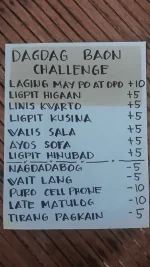 DAGDAG BAON
CHALLENGE
LAGING MAY PO AT OPO +10
LIGPIT HIGAAN +5
LINIS KWARTO +5
LIGPIT KUSINA +5
WALIS SALA +5
AYOS SOFA +5
LIGPIT HINUBAD +5
NAGDADABOG -5
WAIT LANG -5
PURO CELLPHONE -10
LATE MATULOG -10
TIRANG PAGKAIN -5